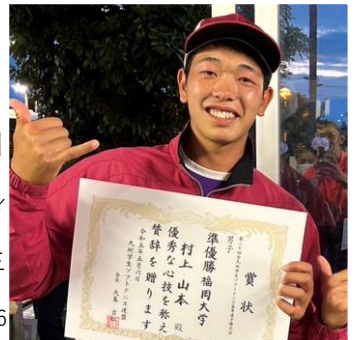 賞状
男子
準優勝 福岡大学
村上 山本 殿
優秀な心技を称え
賛辞を贈ります
令和五年五月六日
九州学生ソフトテニス連盟
会長